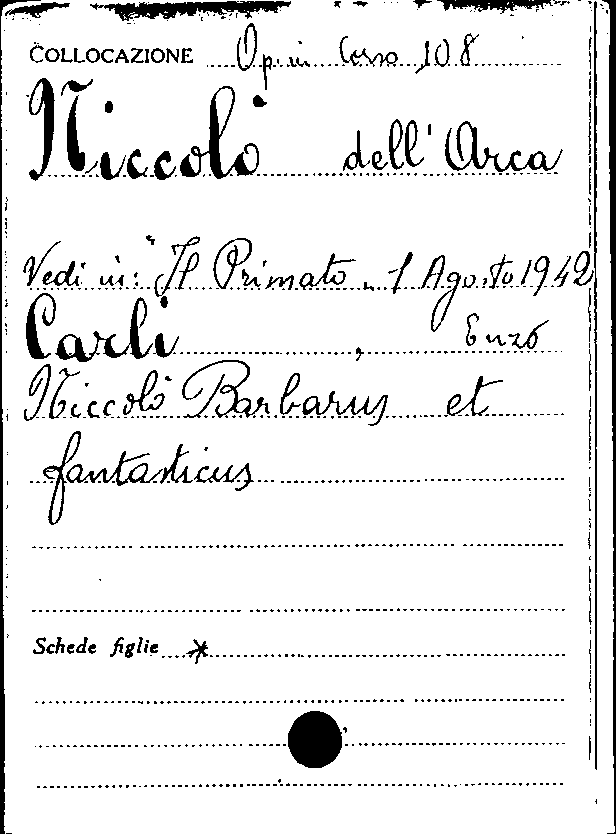 COLLOCAZIONE Op. in Corso 108
Niccolò dell'Arca
Vedi in: "Il Primato" 1 Agosto 1942
Carli, Enzo
Niccolò Barbarus et
fantasticus
Schede figlie *